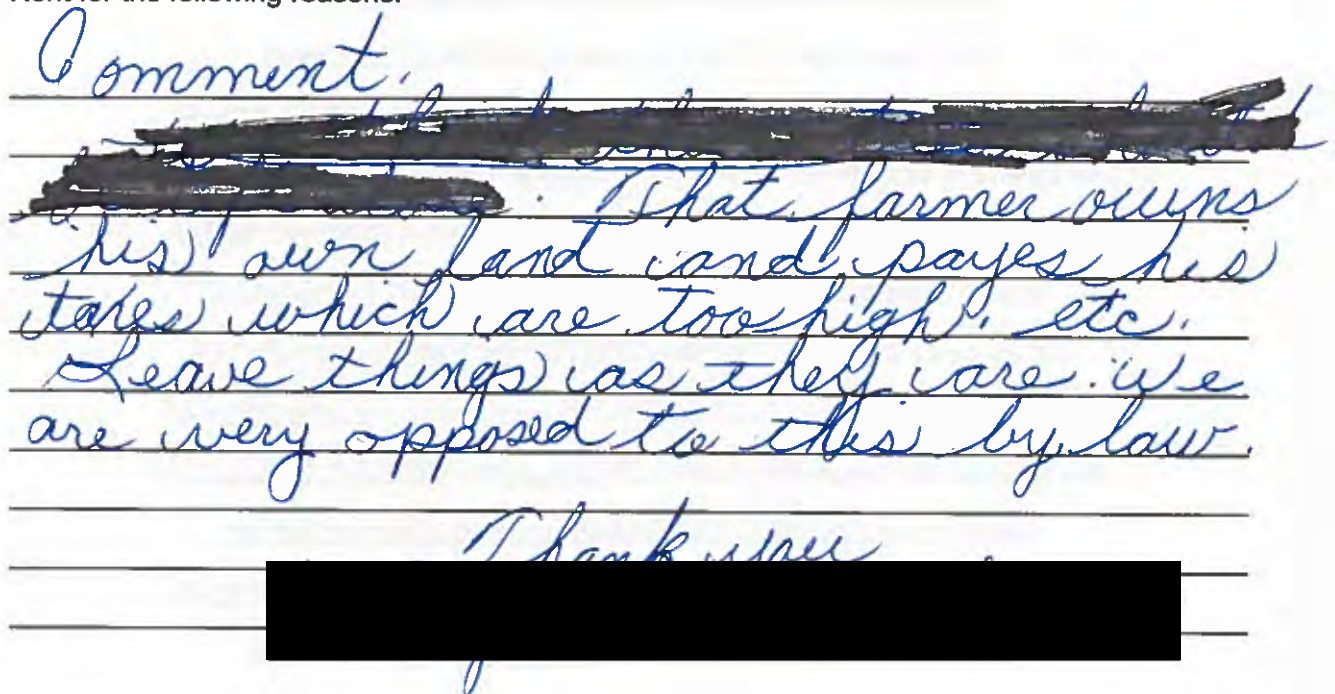 for the following reasons:
Comment.
That farmer owns
his own land and payes his
taxes which are too high. etc.
Leave things as they are. We
are very opposed to this by law.
Thank you